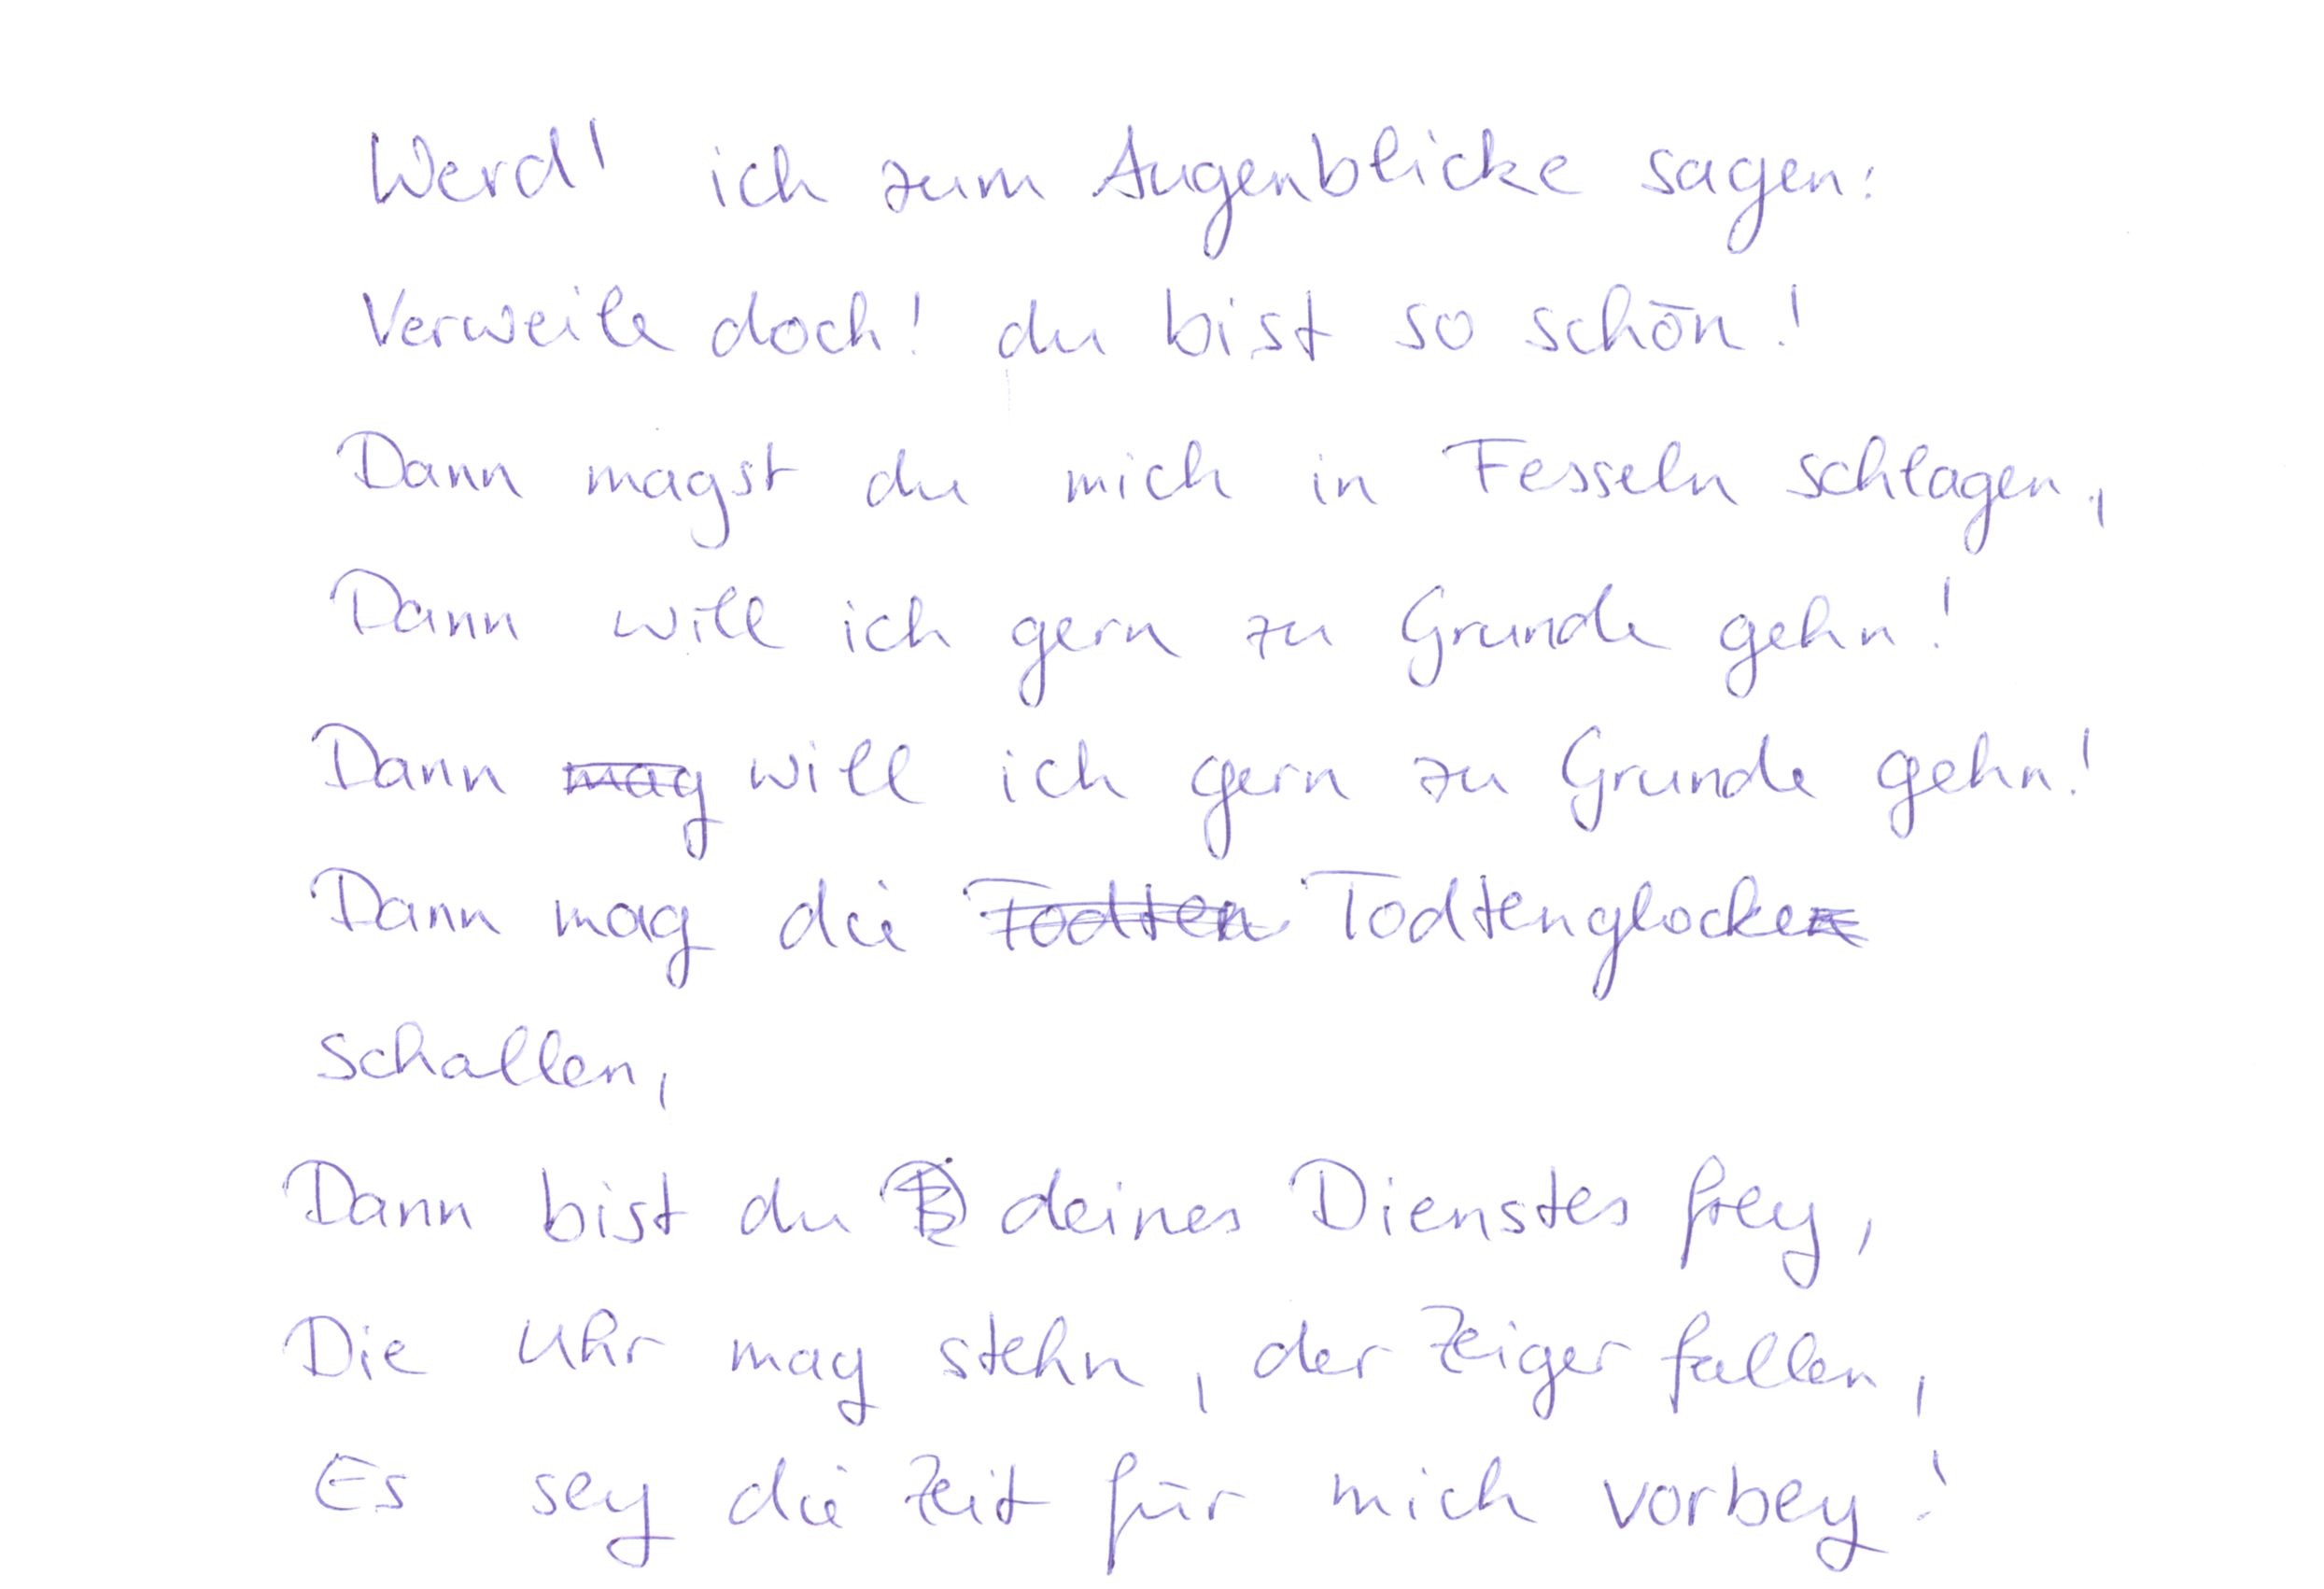 Werd' ich zum Augenblicke sagen:
Verweile doch! du bist so schön!
Dann magst du mich in Fesseln schlagen,
Dann will ich gern zu Grunde gehn!
Dann ~~mag~~ will ich gern zu Grunde gehn!
Dann mag die ~~Todten~~ Todtenglocke~~n~~
schallen,
Dann bist du ~~B~~ deines Dienstes frey,
Die Uhr mag stehn, der Zeiger fallen,
Es sey die Zeit für mich vorbey!